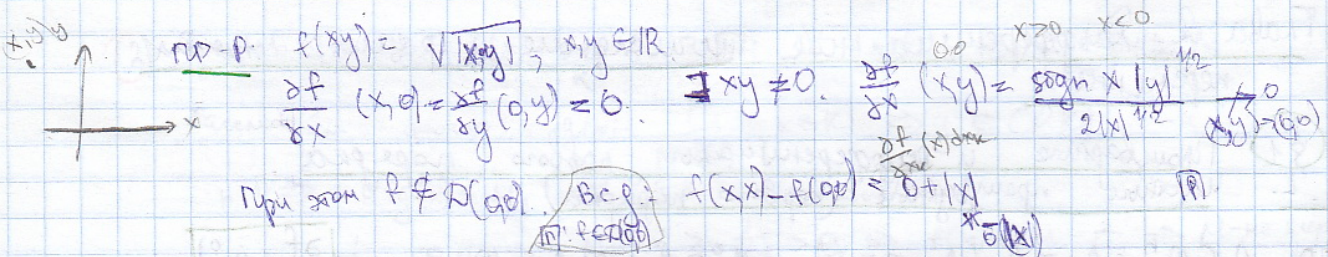 (x,y) y
пр-р. f(x,y) = √|xy|, x,y ∈ ℝ x>0 x<0
∂f/∂x (x,0) = ∂f/∂y (0,y) = 0. ] xy ≠ 0. ∂f/∂x (x,y) = sign x |y|^{1/2} / 2|x|^{1/2} ↛ 0 (x,y)→(0,0)
x
При этом f ∉ D(0,0). В с.д.: f(x,x) - f(0,0) = 0 + |x|
П: f∈D(0,0) ō(|x|)